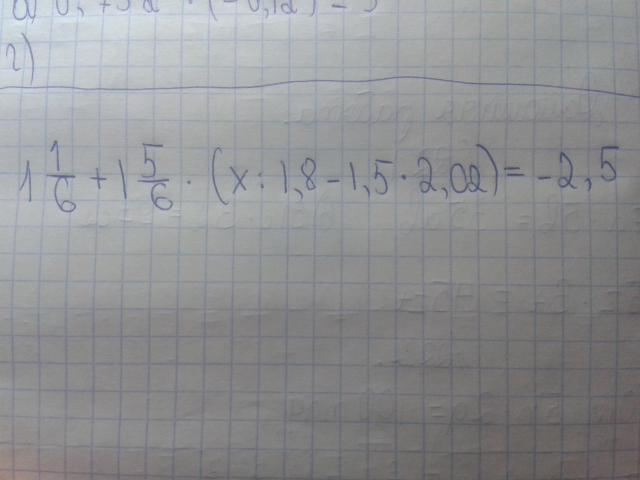 2)
1 1/6 + 1 5/6 · (x : 1,8 - 1,5 · 2,02) = -2,5